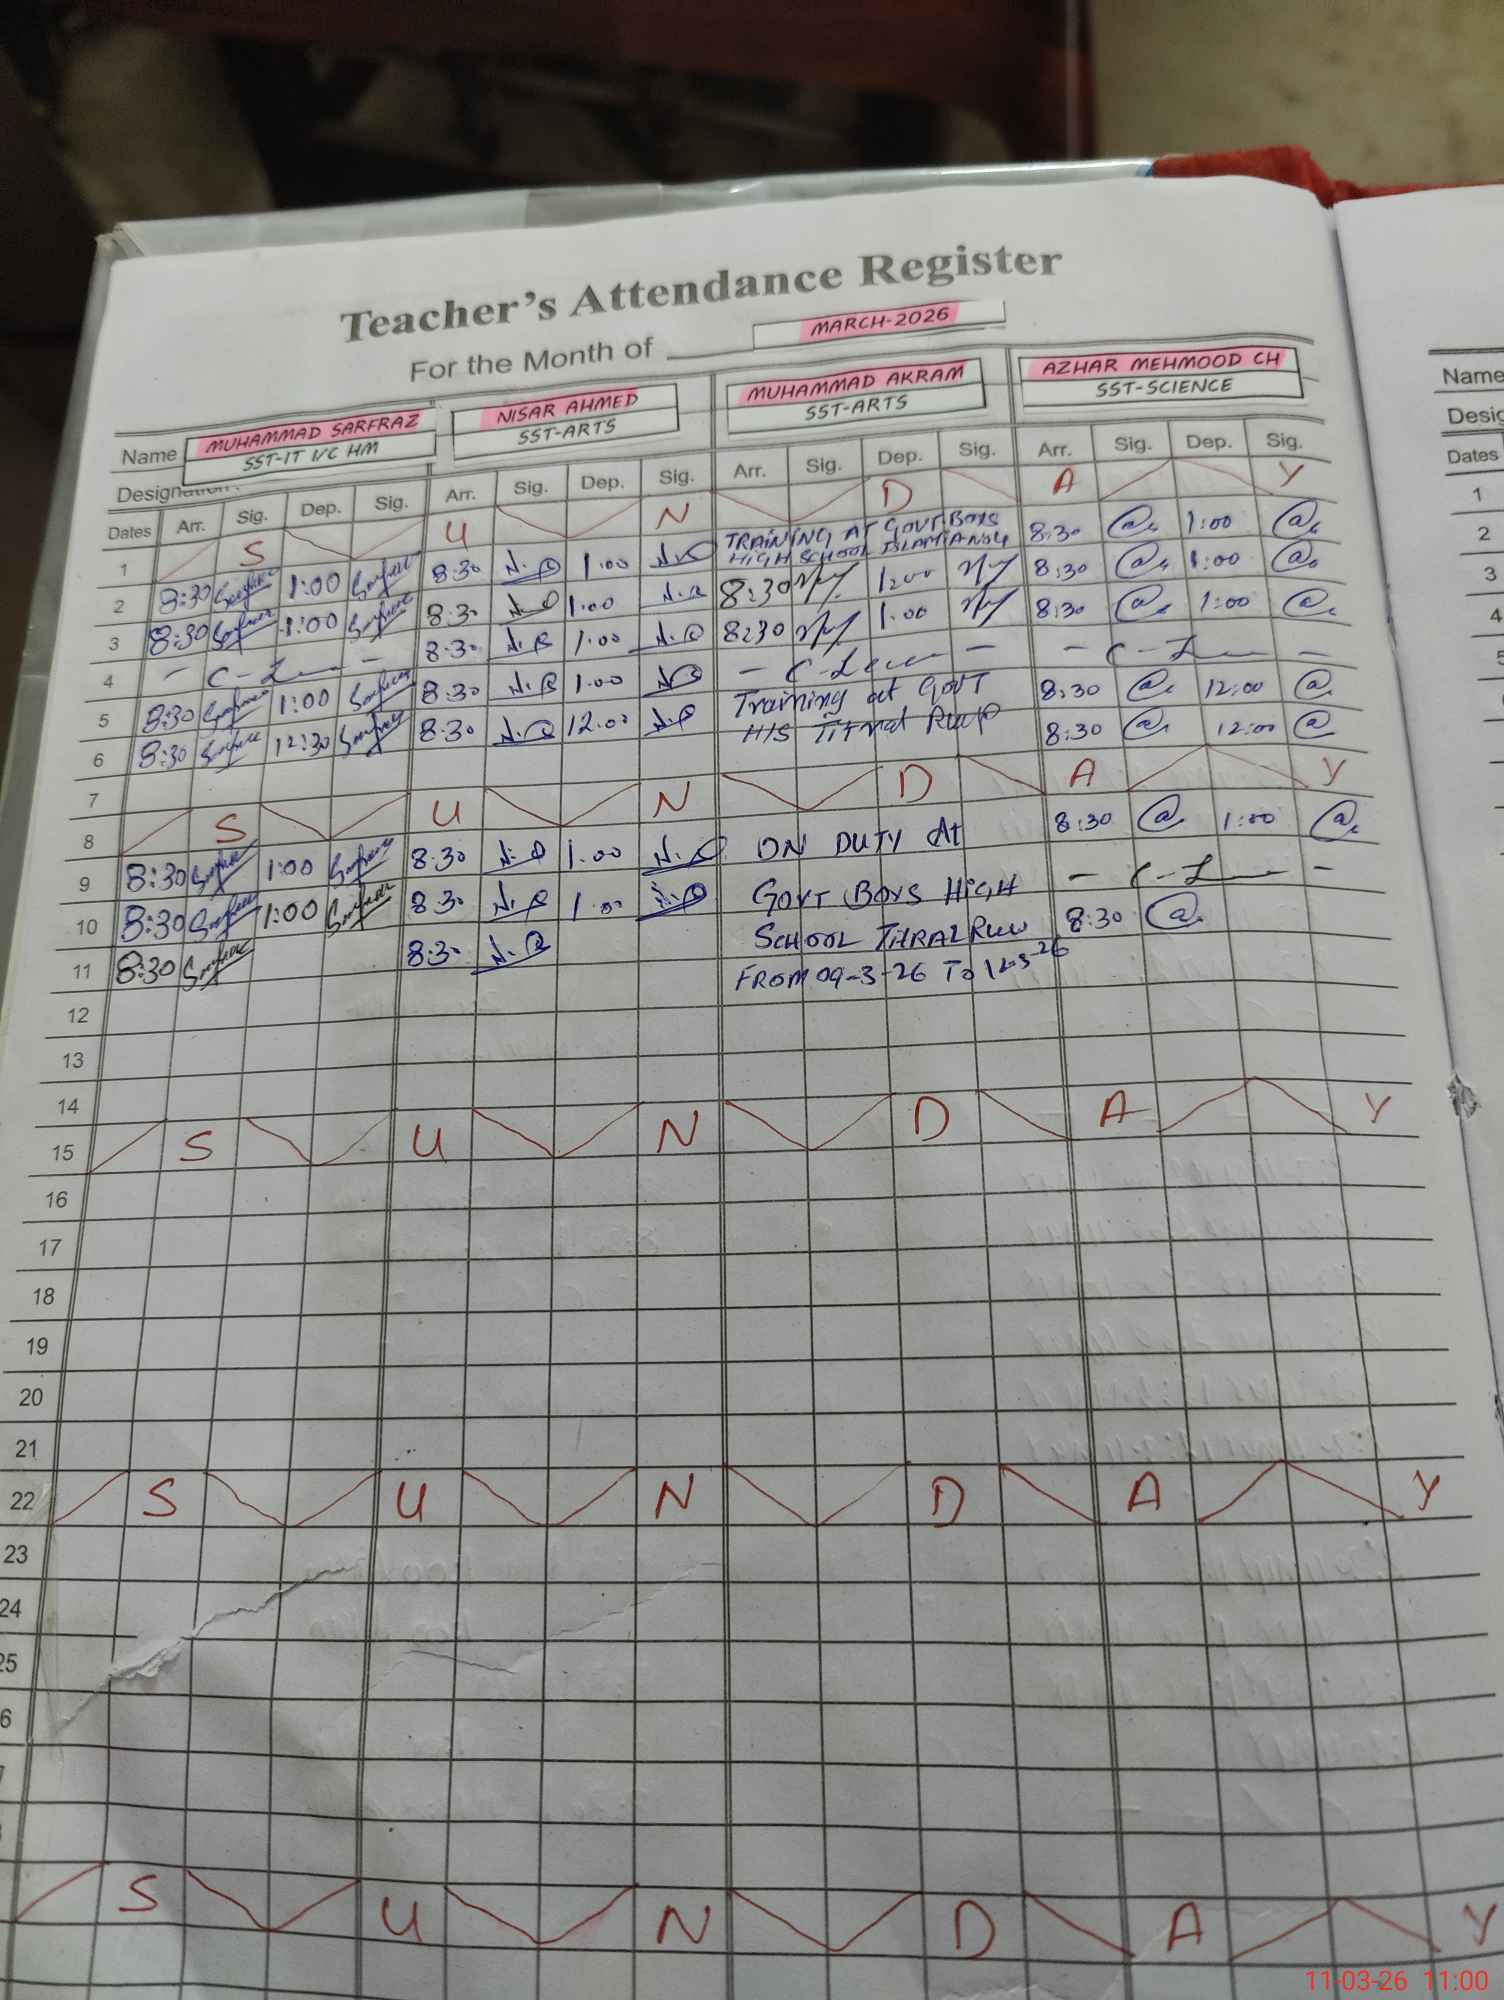 Teacher's Attendance Register
For the Month of MARCH-2026
Name MUHAMMAD SARFRAZ NISAR AHMED MUHAMMAD AKRAM AZHAR MEHMOOD CH
Designation: SST-IT I/C HM SST-ARTS SST-ARTS SST-SCIENCE
Dates Arr. Sig. Dep. Sig. Arr. Sig. Dep. Sig. Arr. Sig. Dep. Sig. Arr. Sig. Dep. Sig.
1 S U N D A Y
2 8:30 1:00 8:30 N.A 1:00 N.A TRAINING AT GOVT BOYS HIGH SCHOOL 8:30 1:00
3 8:30 1:00 8:30 1:00 8:30 1:00 8:30 1:00
4 - C-L - 8:30 1:00 8:30 1:00 8:30 1:00
5 8:30 1:00 8:30 1:00 - C-Leave - - C-L -
6 8:30 12:30 8:30 12:00 Training at GOVT 8:30 12:00
7 H/S 8:30 12:00
8 S U N D A Y
9 8:30 1:00 8:30 1:00 ON DUTY At 8:30 1:00
10 8:30 1:00 8:30 1:00 GOVT BOYS HIGH - C-L -
11 8:30 8:30 SCHOOL 8:30
FROM 09-3-26 To 12-3-26
12
13
14
15 S U N D A Y
16
17
18
19
20
21
22 S U N D A Y
23
24
25
6
S U N D A Y
Name
Desig
Dates
1
2
3
4
5
11-03-26 11:00